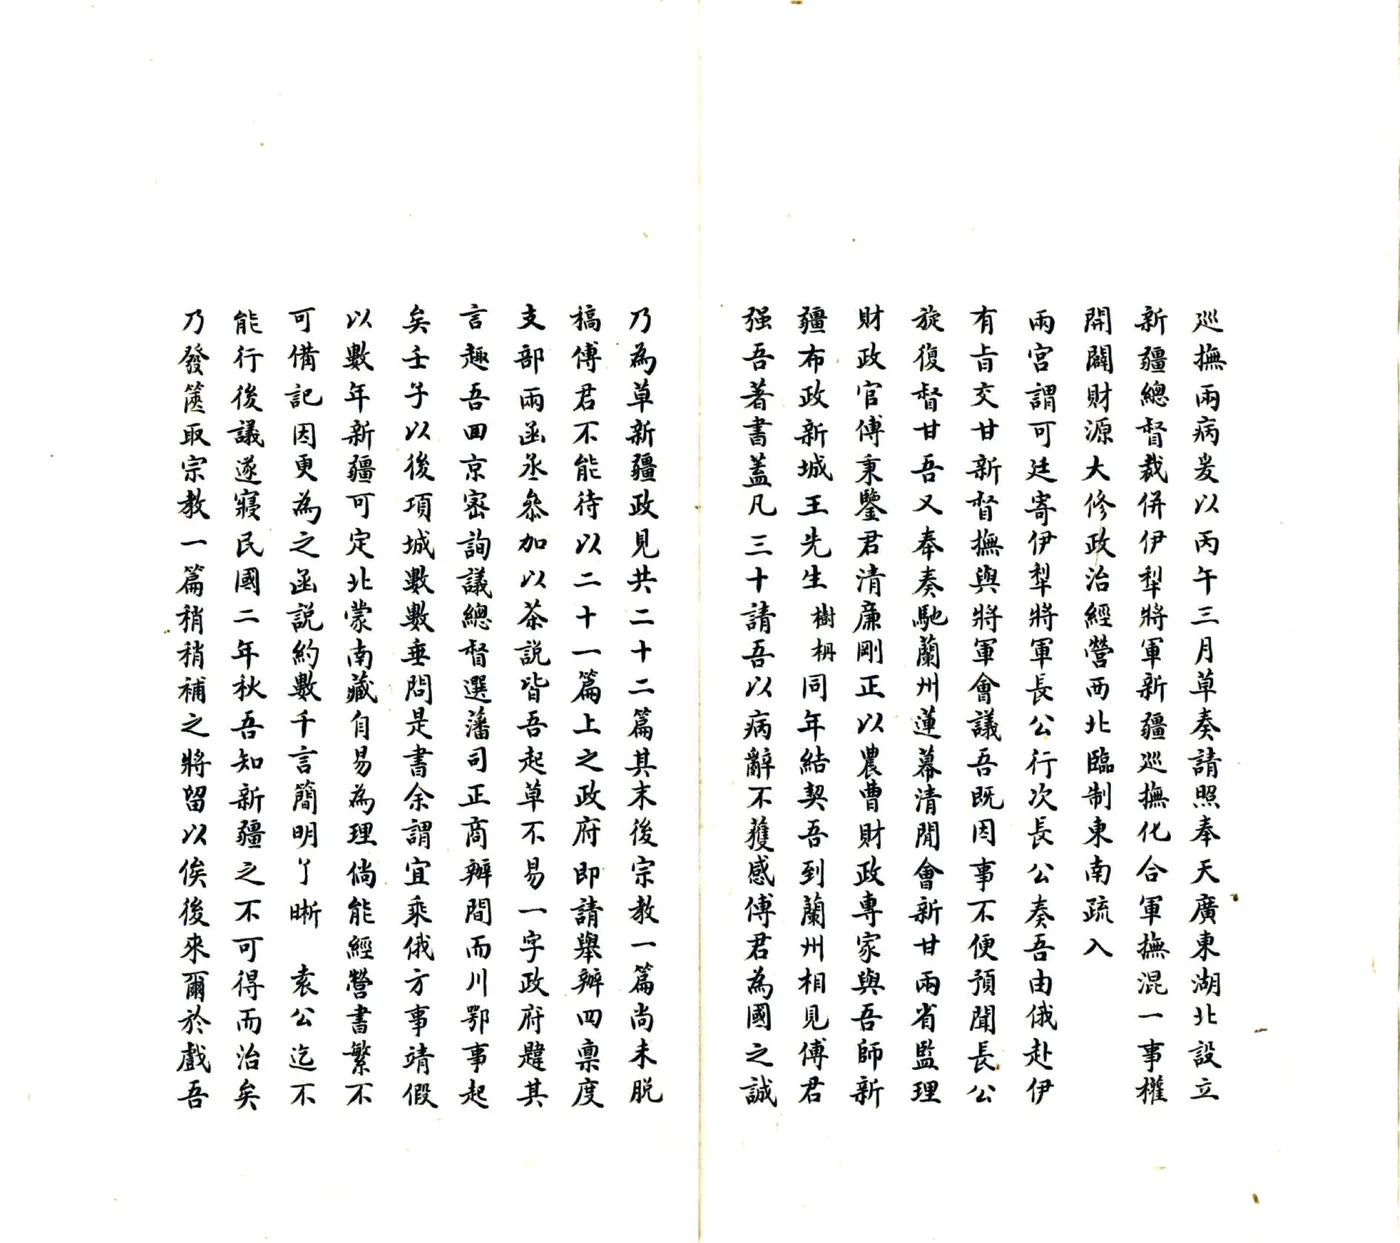 巡撫兩病爰以丙午三月草奏請照奉天廣東湖北設立
新疆總督裁併伊犁將軍新疆巡撫化合軍撫混一事權
開闢財源大修政治經營西北臨制東南疏入
兩宮謂可廷寄伊犁將軍長公行次長公奏吾由俄赴伊
有旨交甘新督撫與將軍會議吾既因事不便預聞長公
旋復督甘吾又奉奏馳蘭州蓮幕清閒會新甘兩省監理
財政官傅秉鑒君清廉剛正以農曹財政專家與吾師新
疆布政新城王先生樹枏同年結契吾到蘭州相見傅君
强吾著書蓋凡三十請吾以病辭不獲感傅君為國之誠
乃為草新疆政見共二十二篇其末後宗教一篇尚未脫
稿傅君不能待以二十一篇上之政府即請舉辦四稟度
支部兩函丞叅加以茶説皆吾起草不易一字政府韙其
言趣吾回京密詢議總督選藩司正商辦間而川鄂事起
矣壬子以後項城數數垂問是書余謂宜乘俄方事靖假
以數年新疆可定北蒙南藏自易為理倘能經營書繁不
可備記因更為之函説約數千言簡明了晰 袁公迄不
能行後議遂寢民國二年秋吾知新疆之不可得而治矣
乃發篋取宗教一篇稍稍補之將留以俟後來爾於戲吾